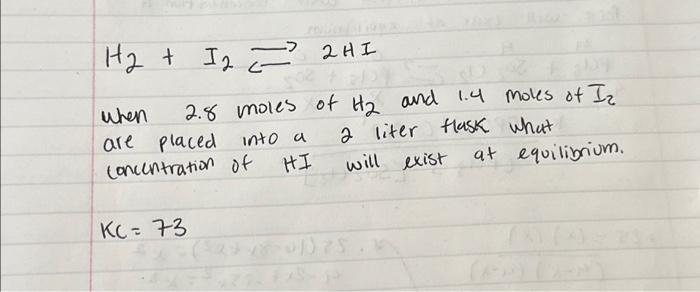 H2 + I2 ⇌ 2HI
when 2.8 moles of H2 and 1.4 moles of I2
are placed into a 2 liter flask what
concentration of HI will exist at equilibrium.
KC = 73